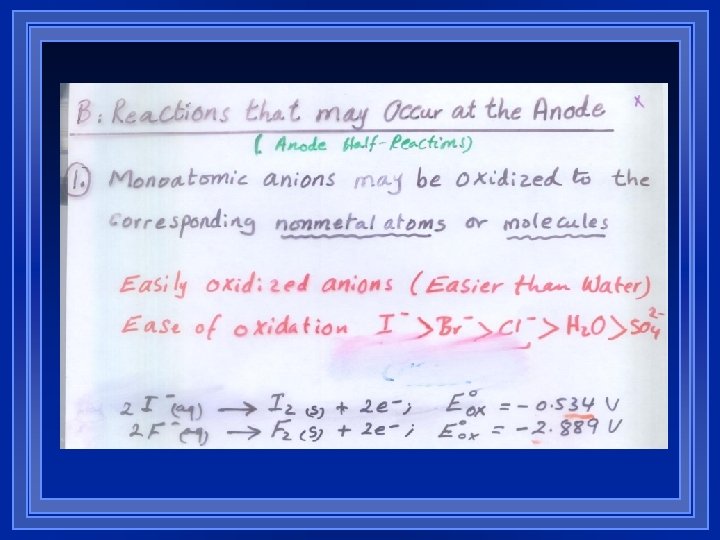 B: Reactions that may Occur at the Anode x
( Anode Half-Reactions)
1. Monoatomic anions may be oxidized to the
corresponding nonmetal atoms or molecules
Easily oxidized anions (Easier than Water)
Ease of oxidation I⁻>Br⁻>Cl⁻>H₂O>SO₄²⁻
2I⁻(aq) → I₂ (s) + 2e⁻; E°ox = -0.534 V
2F⁻(aq) → F₂ (s) + 2e⁻; E°ox = -2.889 V